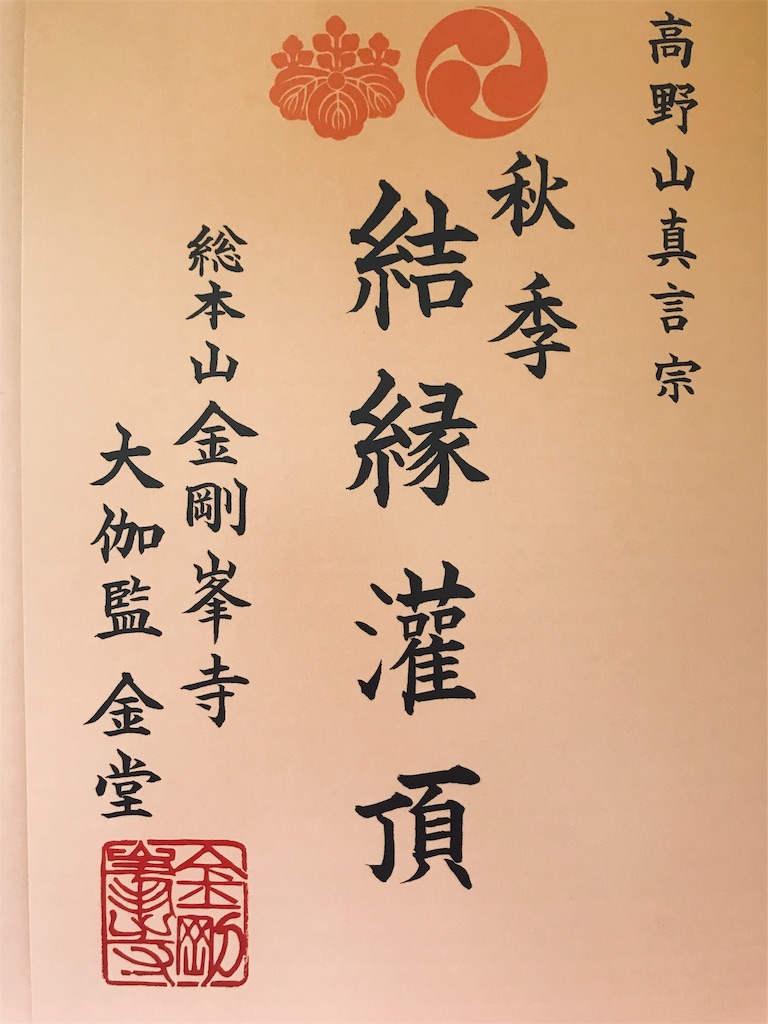 高野山真言宗
秋季
結縁灌頂
総本山金剛峯寺
大伽監 金堂
金剛
峯寺